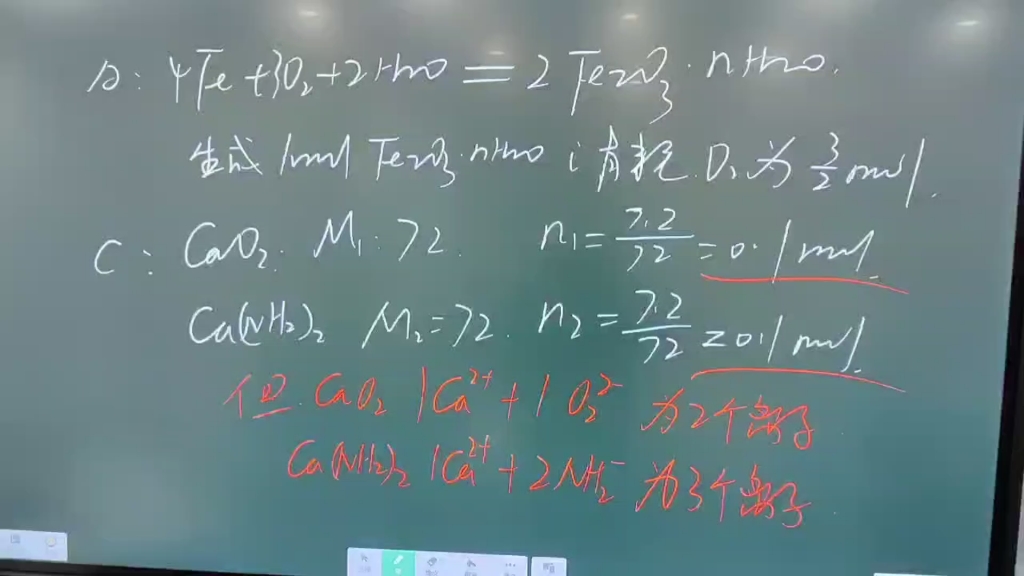 D: 4Fe+3O₂+2nH₂O=2Fe₂O₃·nH₂O.
生成1mol Fe₂O₃·nH₂O 消耗O₂为3/2mol.
C: CaO₂. M₁:72. n₁=7.2/72=0.1mol.
Ca(NH₂)₂ M₂=72. n₂=7.2/72=0.1mol.
但 CaO₂ 1Ca²⁺+1O₂²⁻ 为2个离子
Ca(NH₂)₂ 1Ca²⁺+2NH₂⁻ 为3个离子